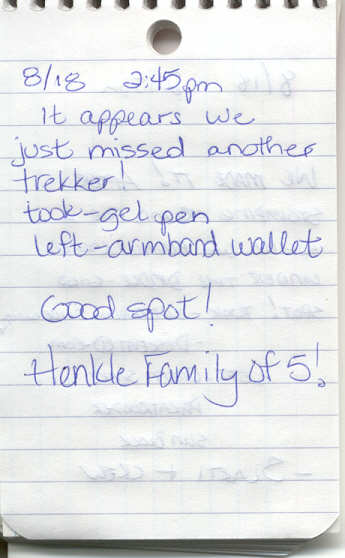 8/18 2:45pm
It appears we
just missed another
trekker!
took-gel pen
left-armband wallet
Good spot!
Henkle Family of 5!